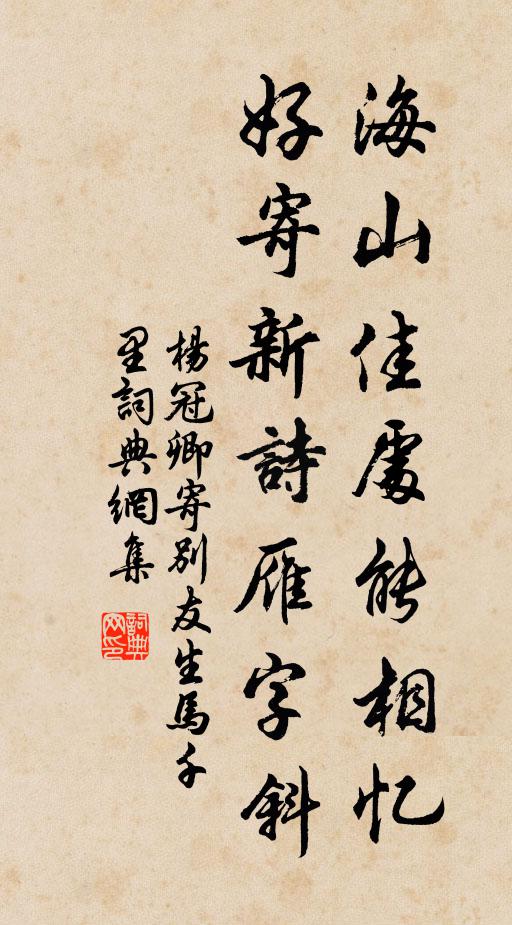 海山佳處能相忆
好寄新詩雁字斜
楊冠卿寄别友生馬千
里詞典網集
詞典
网印